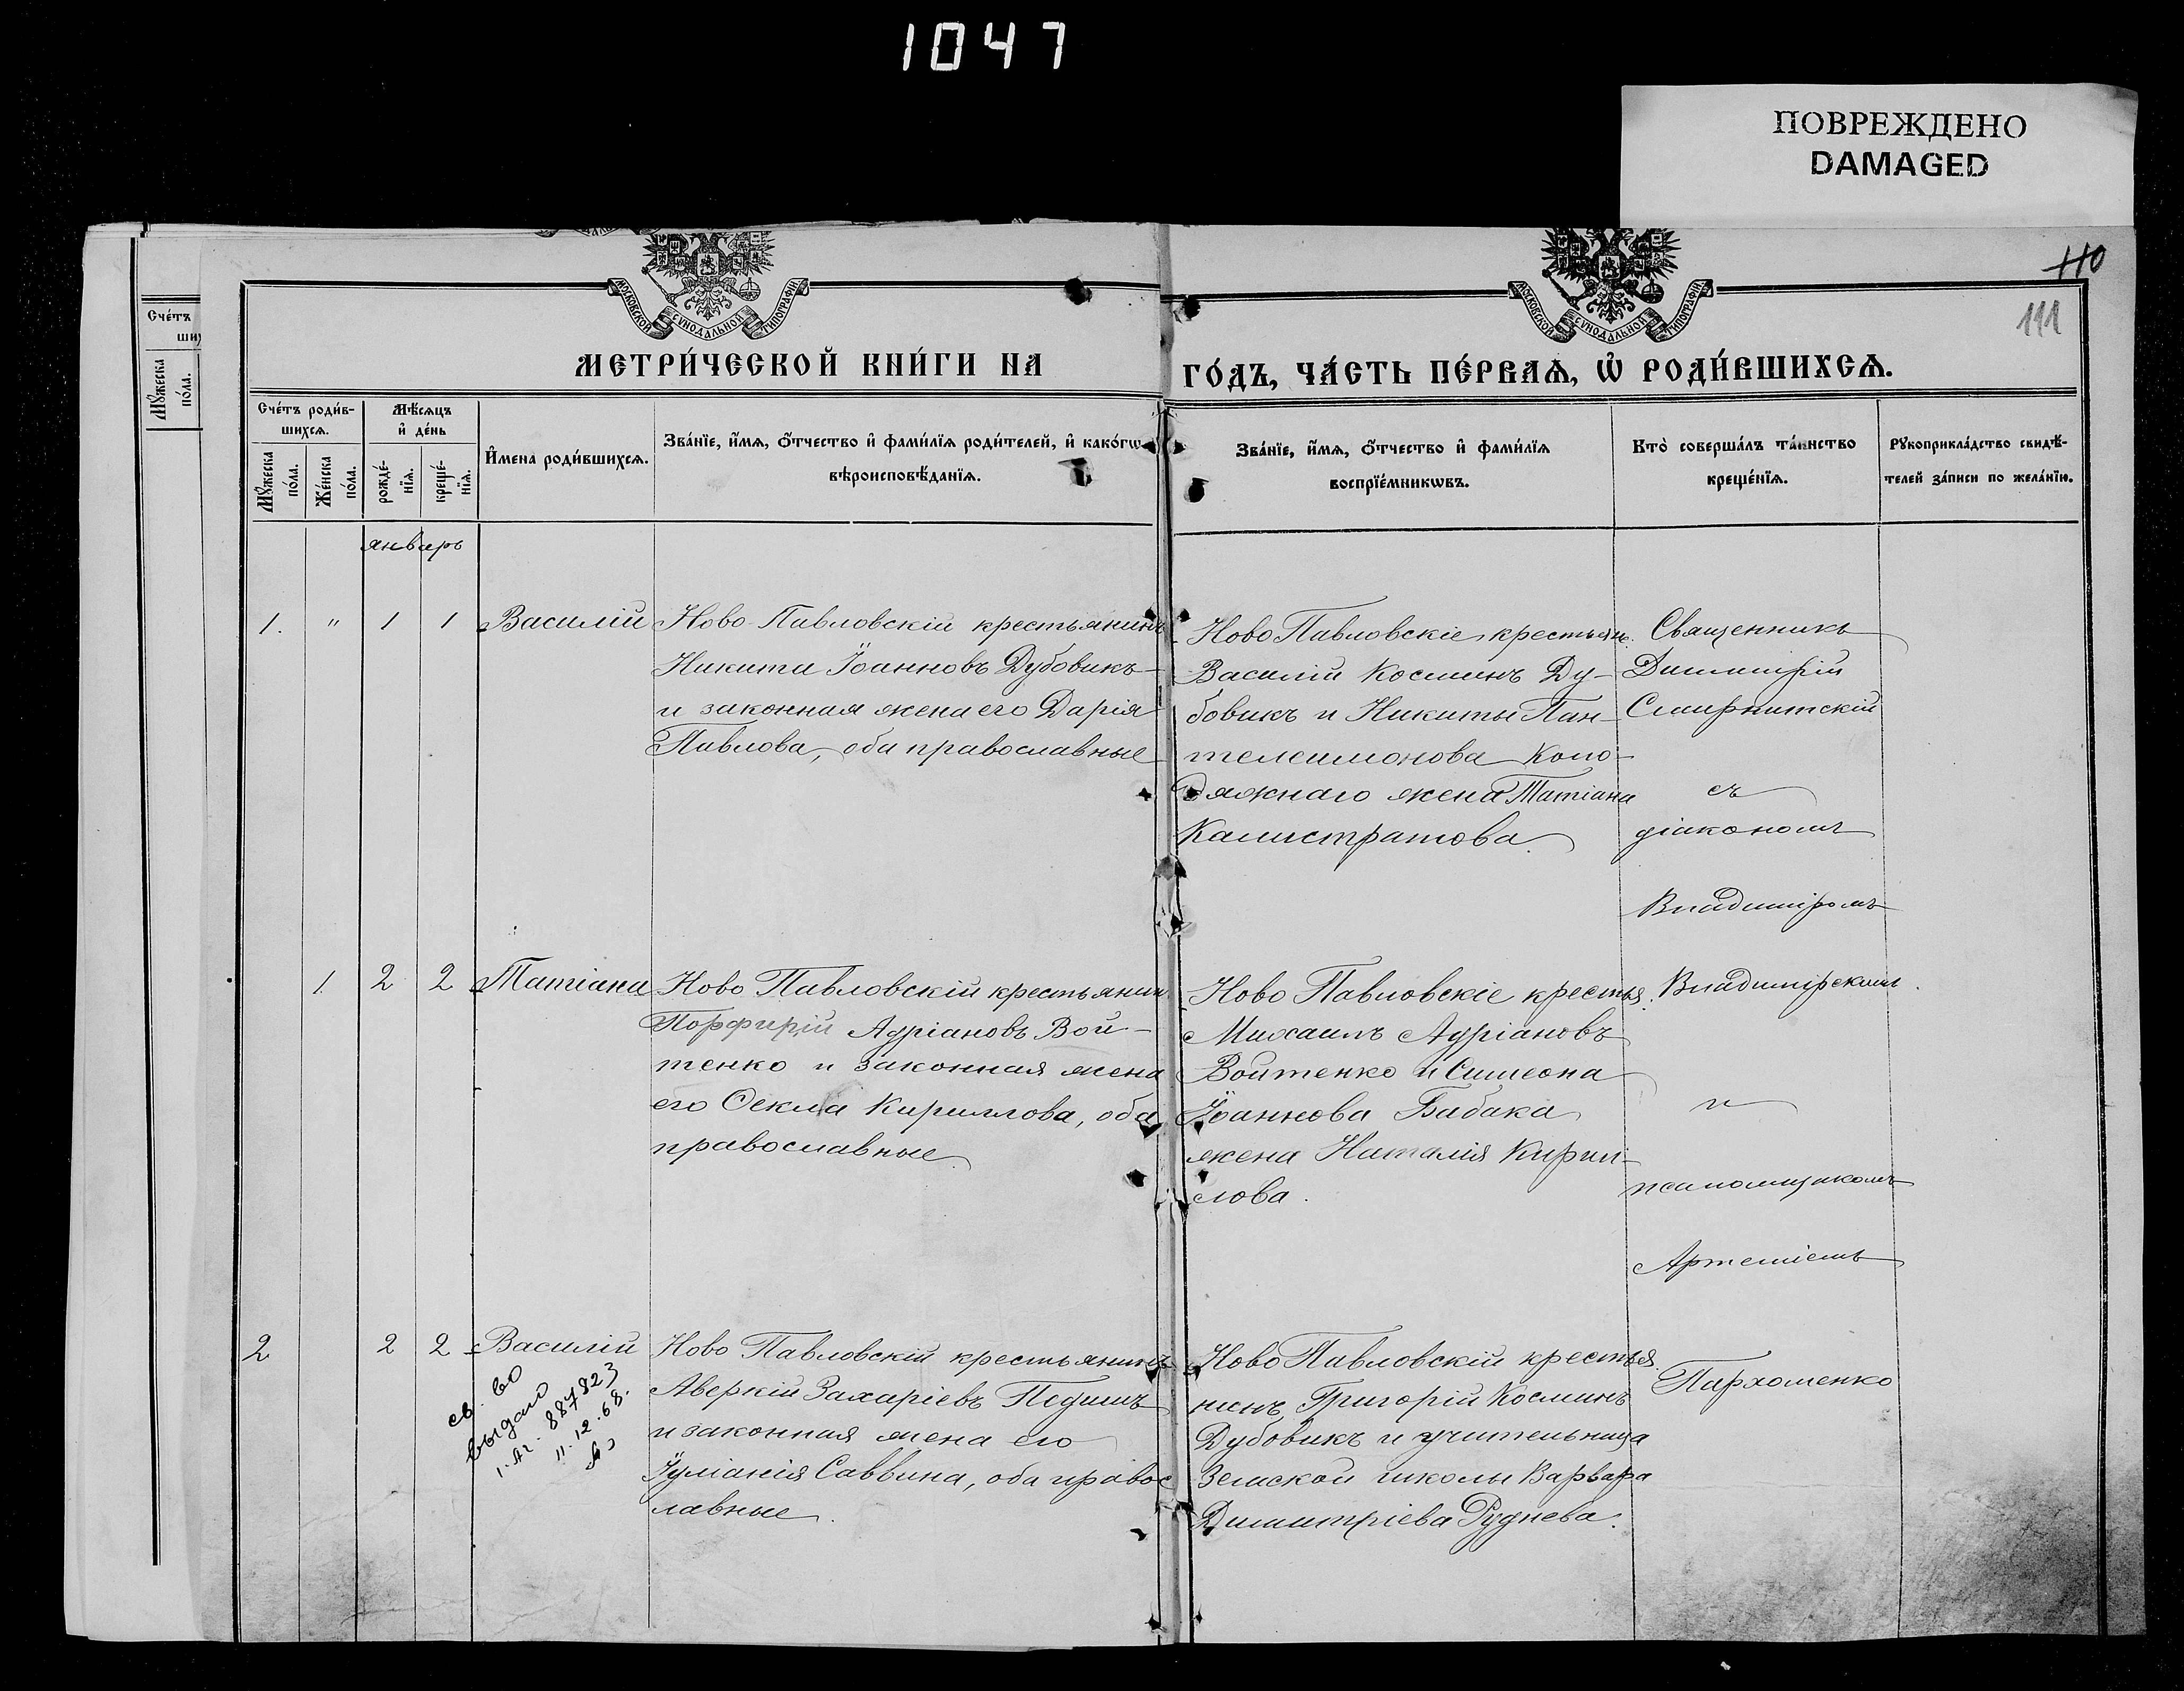 1047
ПОВРЕЖДЕНО
DAMAGED
110
111
МОСКОВСКОЙ СѴНОДАЛЬНОЙ ТИПОГРАФІИ
МОСКОВСКОЙ СѴНОДАЛЬНОЙ ТИПОГРАФІИ
Сче́тъ
Мꙋ́жеска по́ла.
МЕТРИ́ЧЕСКОЙ КНИ́ГИ НА
ГО́ДЪ, ЧА́СТЬ ПЕ́РВАѦ, Ѡ҆ РОДИ́ВШИХСѦ.
Сче́тъ роди́в-
шихсѧ.
Мꙋ́жеска по́ла.
Же́нска по́ла.
Мѣ́сѧцъ
и҆ де́нь
рожде́-
нїѧ.
креще́-
нїѧ.
И҆мена роди́вшихсѧ.
Зва́нїе, и҆́мѧ, ѻ҆́тчество и҆ фами́лїѧ роди́телей, и҆ како́гѡ
вѣроисповѣ́данїѧ.
Зва́нїе, и҆́мѧ, ѻ҆́тчество и҆ фами́лїѧ
воспрїе́мникѡвъ.
Кто̀ соверша́лъ та́инство
креще́нїѧ.
Рꙋкоприкла́дство свидѣ́-
телей за́писи по жела́нїю.
январь
1. " 1 1 Василій
Ново-Павловскій крестьянинъ
Никита Іоанновъ Дубовикъ
и законная жена его Дарія
Павлова, оба православные
Ново Павловскіе крестьян.
Василій Косминъ Ду-
бовикъ и Никиты Пан-
телеимонова Коло-
дяжнаго жена Татіана
Калистратова.
Священникъ
Димитрій
съ
діакономъ
Владиміромъ
1. 2 2 Татіана
Ново Павловскій крестьянин
Порфирій Адріановъ Вой-
тенко и законная жена
его Ѳекла Кириллова, оба
православные.
Ново Павловскіе крестья.
Михаилъ Адріановъ
Войтенко и Симеона
Іоаннова Бабака
жена Наталія Кирил-
лова.
Владимірскимъ
и
псаломщикомъ
Артеміемъ
2 2 2 Василій
св. во
выдано
1. АГ. 887823
11.12.68.
Ново Павловскій крестьянинъ
Аверкій Захаріевъ
и законная жена его
Іуліанія Саввина, оба правос
лавные.
Ново Павловскій крестья.
нинъ, Григорій Косминъ
Дубовикъ и учительница
Земской школы Варвара
Димитріева Руднева.
Пархоменко